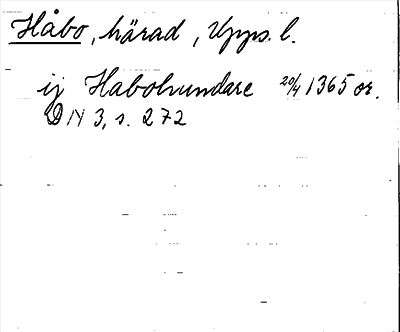 Håbo, härad, Upps. l.
ij Habohundare 20/4 1365 or.
DN 3, s. 272